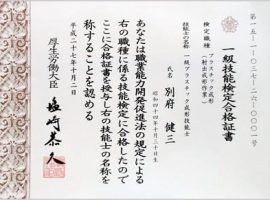 第一五-一-〇三七-二六-〇〇〇一号
一級技能検定合格証書
検定職種 プラスチック成形
(射出成形作業)
技能士の名称 一級プラスチック成形技能士
氏名 別府 健三
昭和四十四年十月三十日生
あなたは職業能力開発促進法の規定による
右の職種に係る技能検定に合格したので
ここに合格証書を授与し右の技能士の名称を
称することを認める
平成二十七年十月二日
厚生労働大臣 塩崎恭久